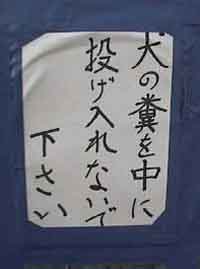 犬の糞を中に
投げ入れないで
下さい